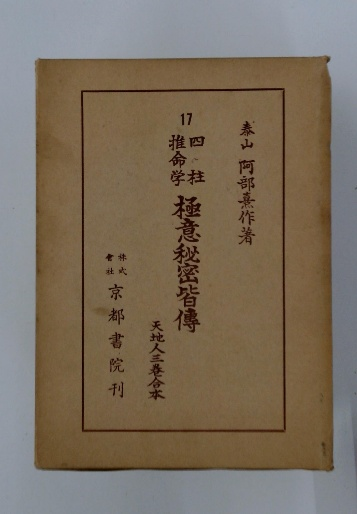 泰山 阿部熹作著
17
四柱
推命学
極意秘密皆傳
天地人三巻合本
株式會社 京都書院刊